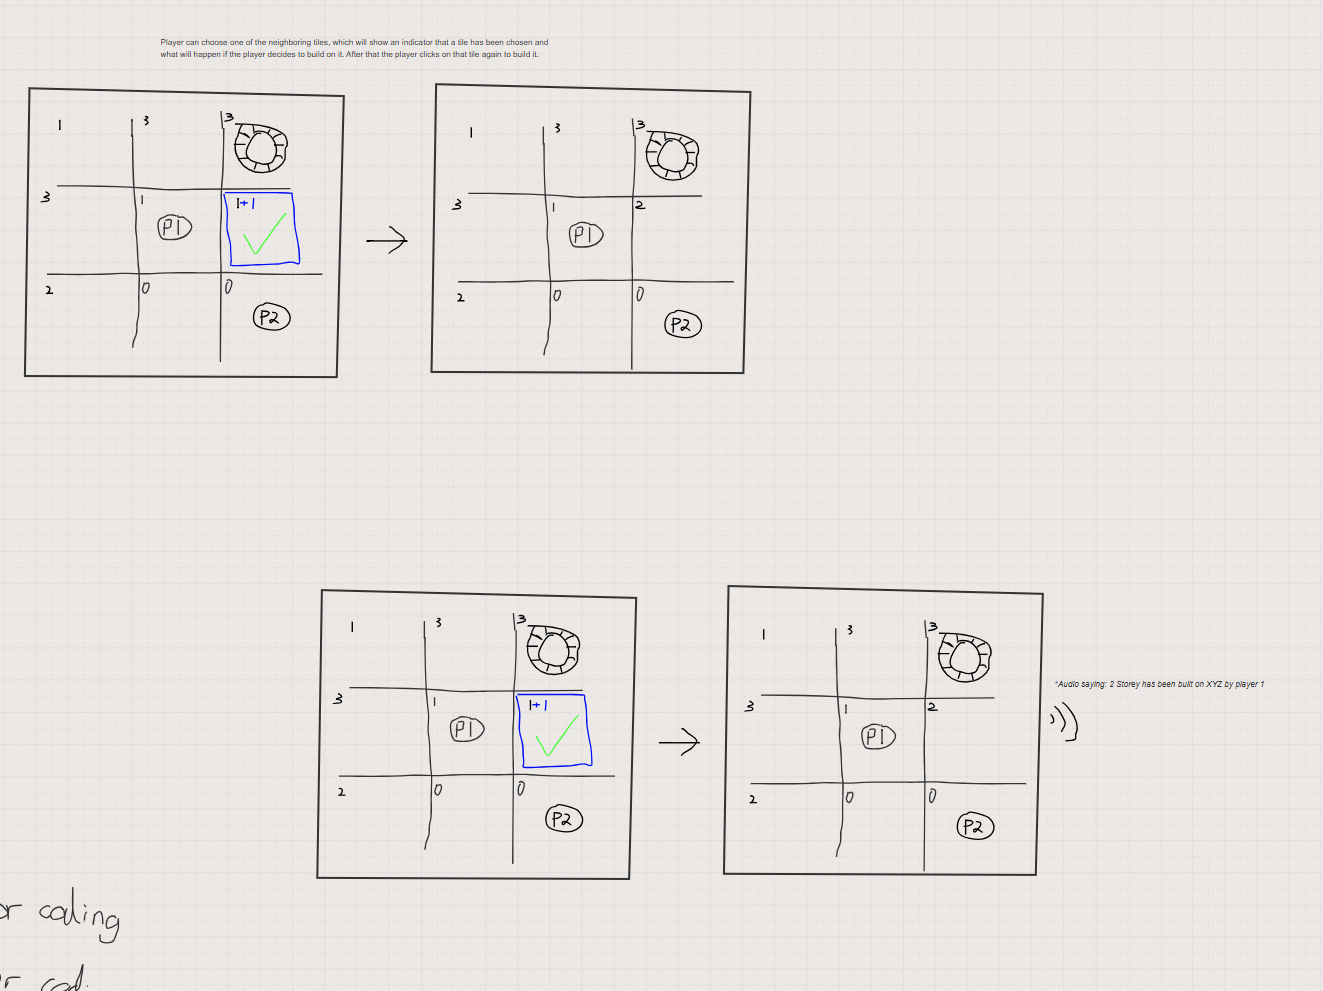 Player can choose one of the neighboring tiles, which will show an indicator that a tile has been chosen and
what will happen if the player decides to build on it. After that the player clicks on that tile again to build it.
1 3 3
3 1 1+1
P1
2 0 0
P2
1 3 3
3 1 2
P1
2 0 0
P2
1 3 3
3 1 1+1
P1
2 0 0
P2
1 3 3
3 1 2
P1
2 0 0
P2
*Audio saying: 2 Storey has been built on XYZ by player 1
or coding